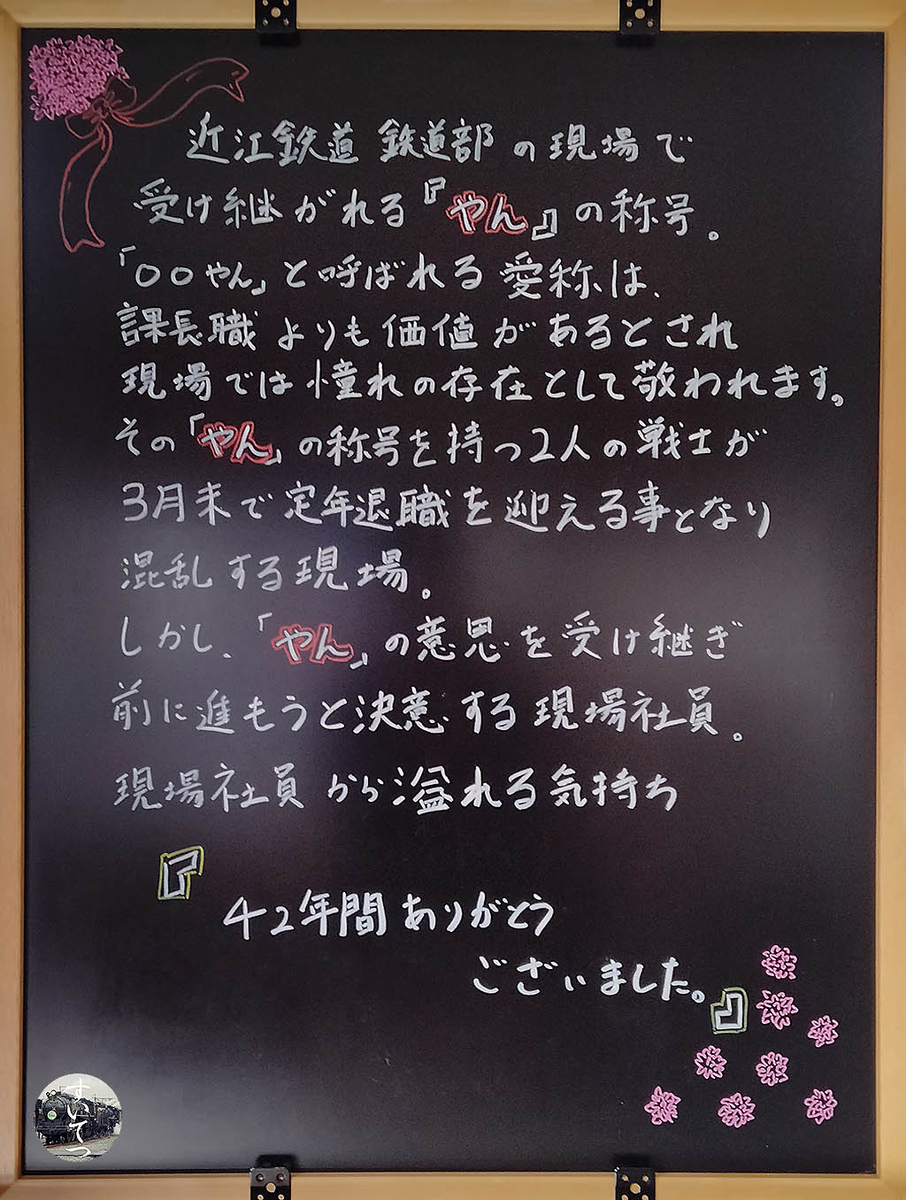 近江鉄道 鉄道部の現場で
受け継がれる『やん』の称号。
「〇〇やん」と呼ばれる愛称は、
課長職よりも価値があるとされ
現場では憧れの存在として敬われます。
その「やん」の称号を持つ2人の戦士が
3月末で定年退職を迎える事となり
混乱する現場。
しかし、「やん」の意思を受け継ぎ
前に進もうと決意する現場社員。
現場社員から溢れる気持ち
『
42年間ありがとう
ございました。』
すいてつ